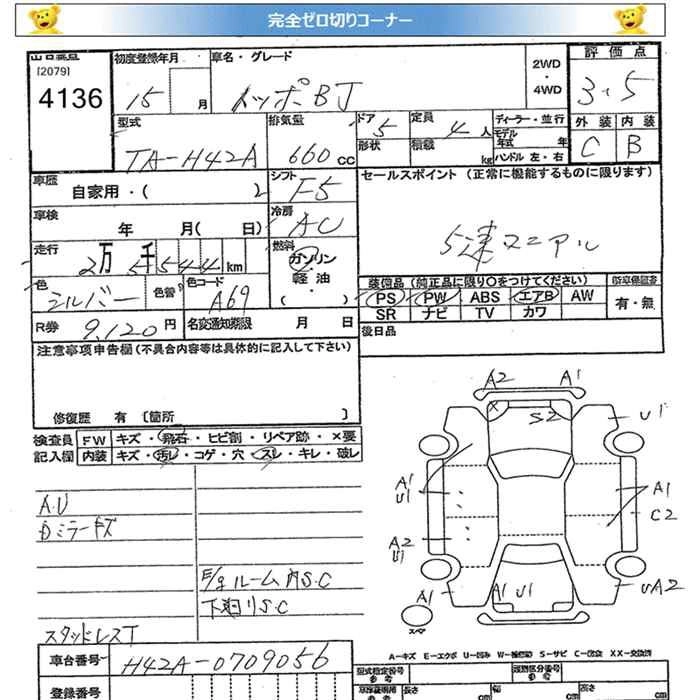 完全ゼロ切りコーナー
出品番号
[2079]
4136
初度登録年月
15 月
車名・グレード
トッポBJ
2WD
・
4WD
評価点
3.5
型式
TA-H42A
排気量
660cc
ドア 5
形状
定員 4人
積載 kg
ディーラー・並行
モデル年式 年
ハンドル 左・右
外装 C
内装 B
車歴
自家用・( )
シフト
F5
セールスポイント (正常に機能するものに限ります)
5速マニアル
車検
年 月( 日)
冷房
AC
走行
2万5千544km
燃料
ガソリン
・
軽油
・
( )
色
シルバー
色替
色コード
A69
装備品 (純正品に限り〇をつけてください)
PS PW ABS エアB AW
SR ナビ TV カワ
新車保証書
有・無
R券 9,120円
名変通知期限 月 日
後日品
注意事項申告欄 (不具合内容等は具体的に記入して下さい)
修復歴 有 [箇所 ]
検査員
記入欄
FW キズ・飛石・ヒビ割・リペア跡・×要
内装 キズ・汚レ・コゲ・穴・スレ・キレ・破レ
A.U
Dミラーキズ
E/gルーム内S.C
下廻りS.C
スタッドレスT
A2 A1
X S2
U1
A1
U1
A1
C2
A2
U1
A1 A1 U1 UA2
スペア
A-キズ E-エクボ U-凹み W-補修跡 S-サビ C-腐食 XX-交換済
車台番号
H42A-0709056
登録番号
型式指定番号
参考
類別区分番号
参考
車庫証明用
参考
長さ cm
幅 cm
高さ cm